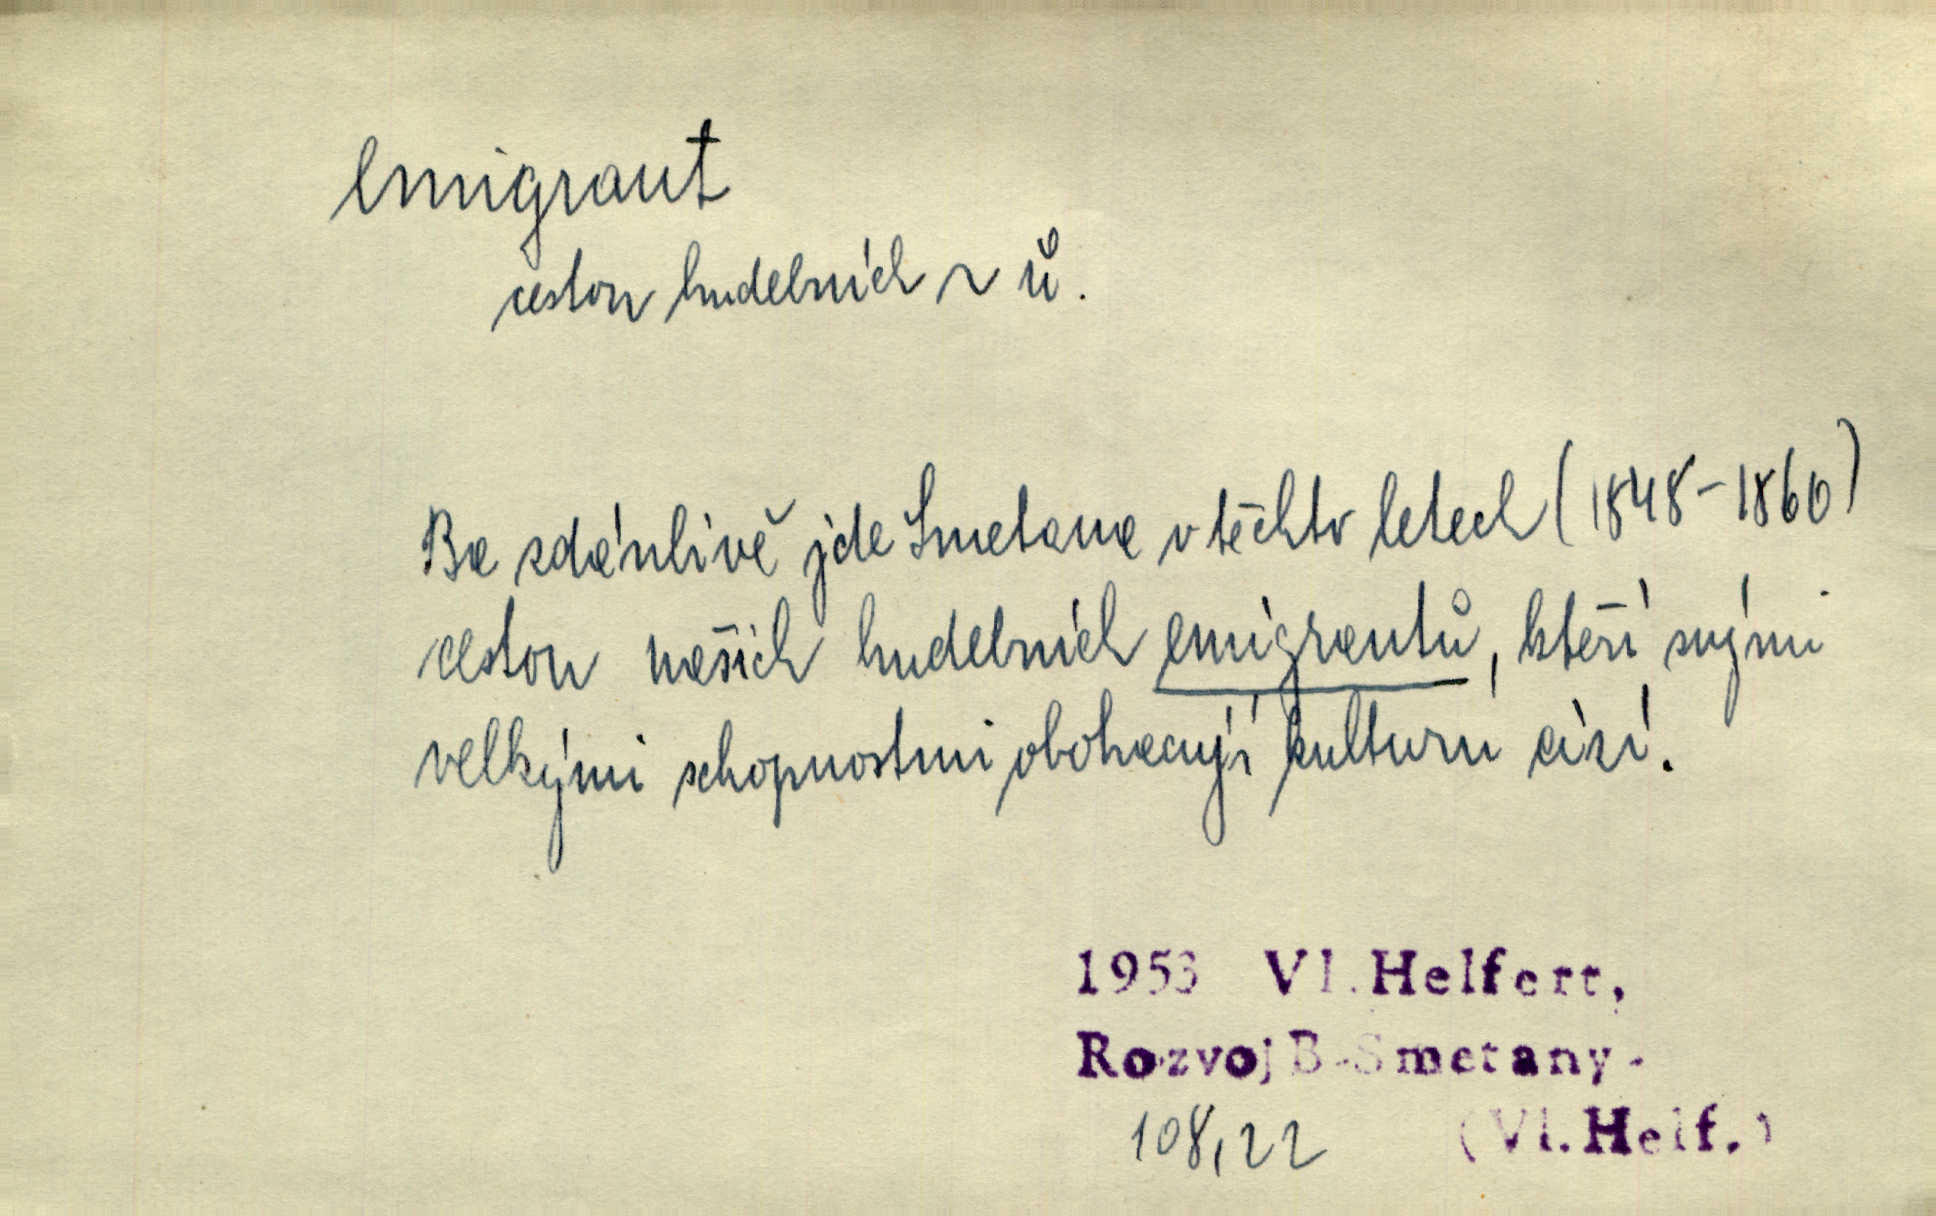 emigrant
cestou hudebních ~ ů.
Ba zdánlivě jde Smetana v těchto letech (1848-1860)
cestou našich hudebních emigrantů, kteří svými
velkými schopnostmi obohacují kulturu cizí.
1953 Vl. Helfert,
Rozvoj B. Smetany -
108,22 (Vl. Helf.)